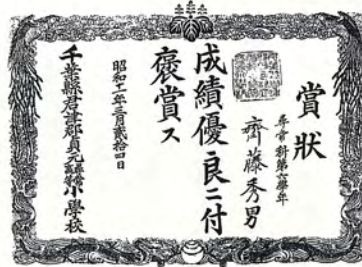 賞狀
尋常科第六學年
齊藤秀男
成績優良ニ付
褒賞ス
昭和十一年三月貳拾四日
千葉縣君津郡貞元尋常高等小學校